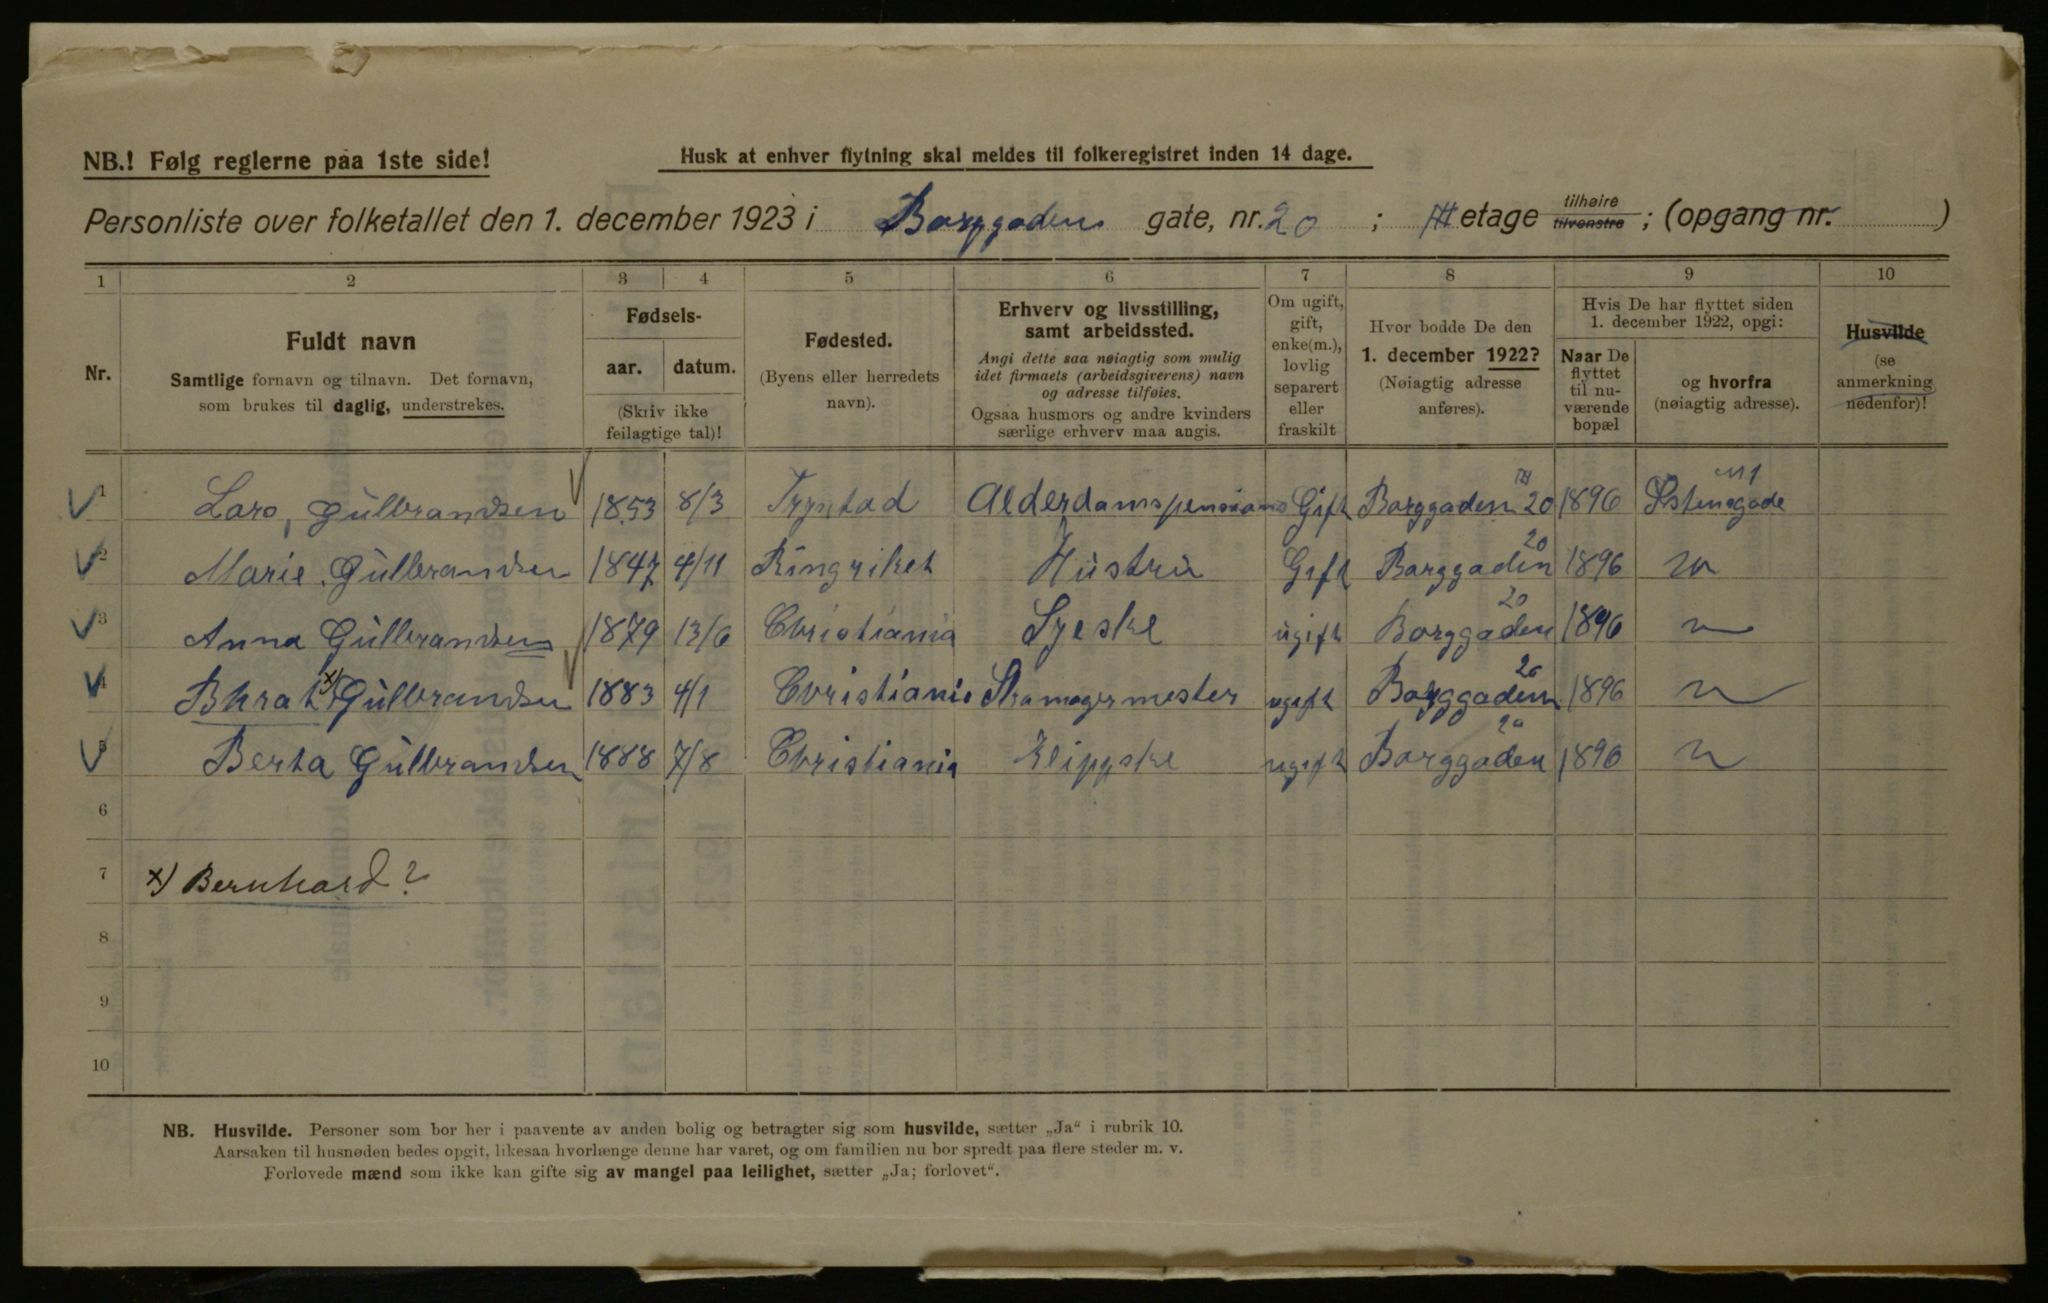 NB.! Følg reglerne paa 1ste side!
Husk at enhver flytning skal meldes til folkeregistret inden 14 dage.
Personliste over folketallet den 1. december 1923 i Borggaden gate, nr. 20 ; etage tilhøire tilvenstre ; (opgang nr. )
1 2 3 4 5 6 7 8 9 10
Nr.
Fuldt navn
Samtlige fornavn og tilnavn. Det fornavn,
som brukes til daglig, understrekes.
Fødsels-
aar. datum.
(Skriv ikke
feilagtige tal)!
Fødested.
(Byens eller herredets
navn).
Erhverv og livsstilling,
samt arbeidssted.
Angi dette saa nøiagtig som mulig
idet firmaets (arbeidsgiverens) navn
og adresse tilføies.
Ogsaa husmors og andre kvinders
særlige erhverv maa angis.
Om ugift,
gift,
enke(m.),
lovlig
separert
eller
fraskilt
Hvor bodde De den
1. december 1922?
(Nøiagtig adresse
anføres).
Hvis De har flyttet siden
1. december 1922, opgi:
Naar De
flyttet
til nu-
værende
bopæl
og hvorfra
(nøiagtig adresse).
Husvilde
(se
anmerkning
nedenfor)!
1 Lars, Gulbrandsen 1853 8/3 Trygstad Alderdamspensions Gift Borggaden 20 1896
2 Marie Gulbrandsen 1847 4/11 Ringriket Hustru Gift Borggaden 20 1896
3 Anna Gulbrandsen 1879 13/6 Christiania Syeske ugift Borggaden 20 1896
4 x) Gulbrandsen 1883 4/1 Christiania ugift Borggaden 20 1896
5 Berta Gulbrandsen 1888 7/8 Christiania Klippske ugift Borggaden 20 1896
6
7 x) Bernhard?
8
9
10
NB. Husvilde. Personer som bor her i paavente av anden bolig og betragter sig som husvilde, sætter „Ja“ i rubrik 10.
Aarsaken til husnøden bedes opgit, likesaa hvorlænge denne har varet, og om familien nu bor spredt paa flere steder m. v.
Forlovede mænd som ikke kan gifte sig av mangel paa leilighet, sætter „Ja; forlovet“.